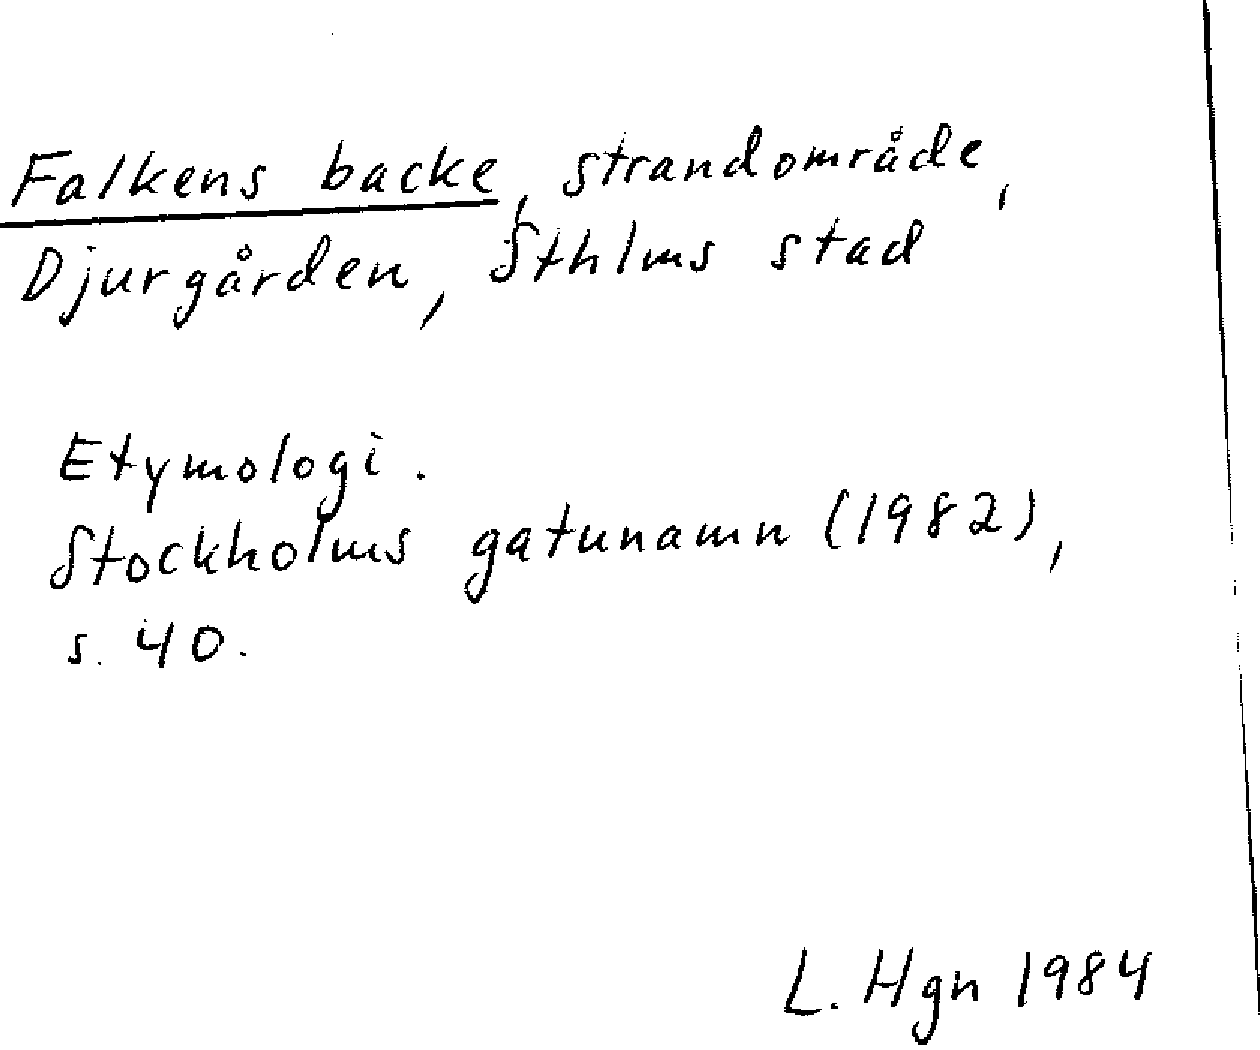 Falkens backe, strandområde,
Djurgården, Sthlms stad
Etymologi.
Stockholms gatunamn (1982),
s. 40.
L. Hgn 1984